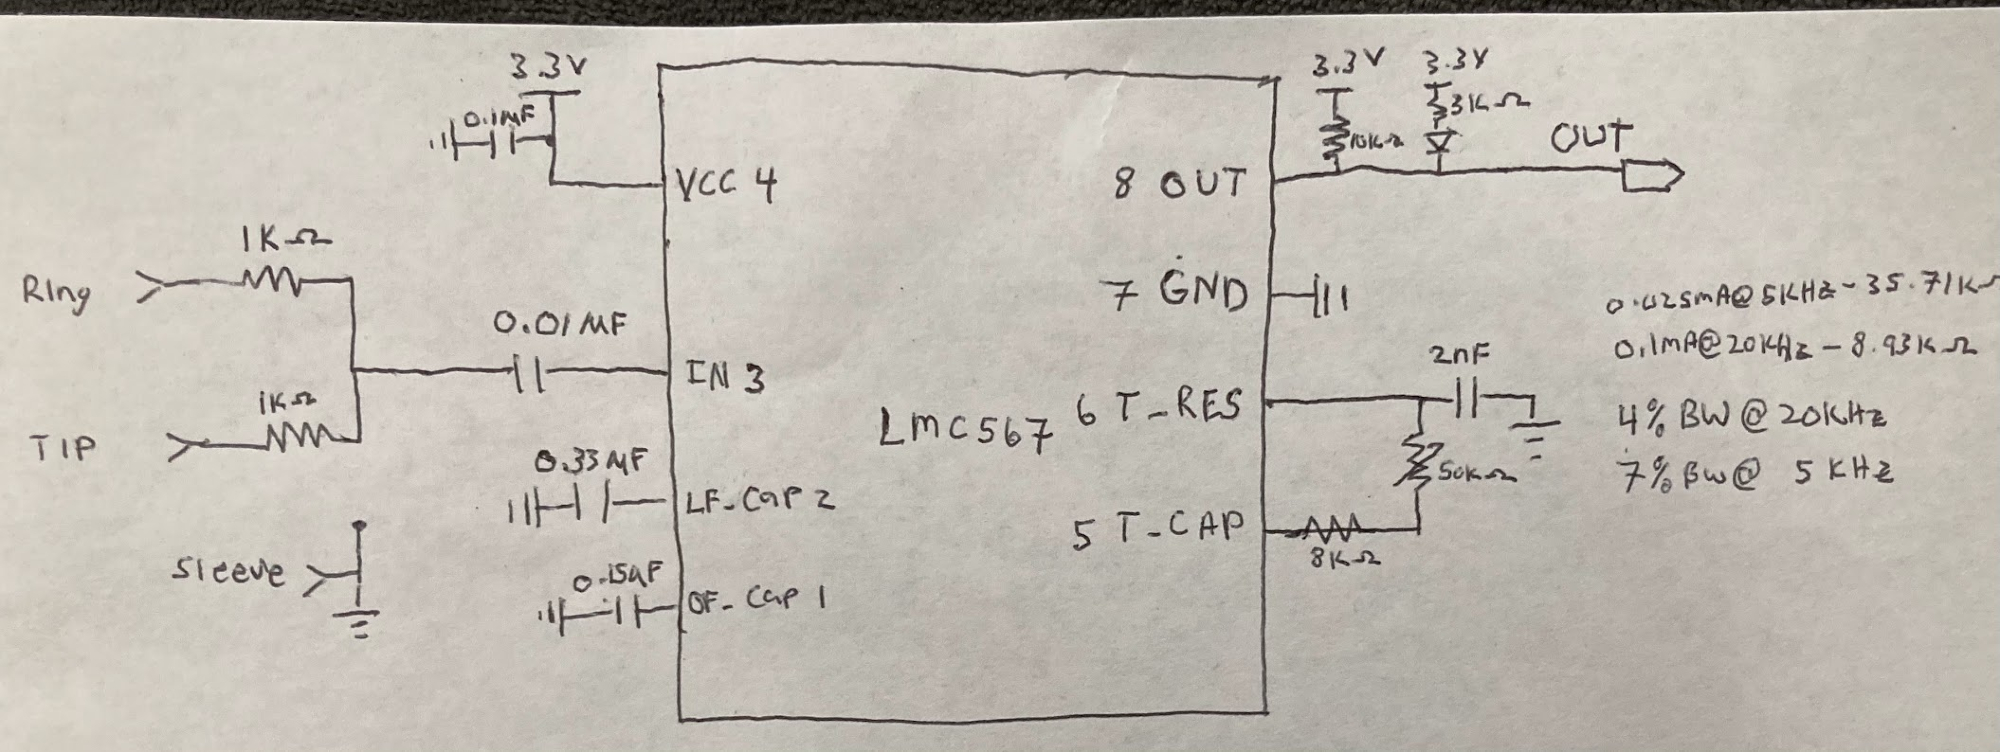 3.3V
0.1MF
VCC 4
1KΩ
Ring
0.01MF
IN 3
1KΩ
TIP
0.33MF
LF-Cap 2
Sleeve
0.15µF
OF-Cap 1
LMC567
3.3V
3.3V
3KΩ
10KΩ
OUT
8 OUT
7 GND
2nF
6 T-RES
50KΩ
5 T-CAP
8KΩ
0.025mA@5KHz-35.71KΩ
0.1mA@20KHz-8.93KΩ
4% BW@20KHz
7% BW@ 5 KHz